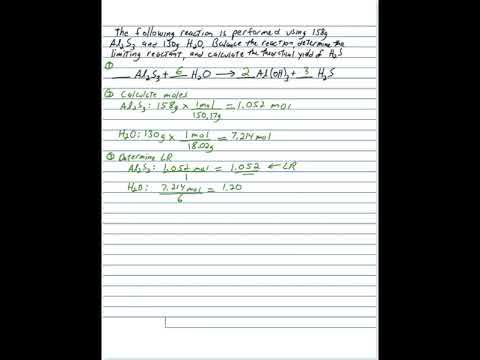 The following reaction is performed using 158g
Al₂S₃ and 130g H₂O. Balance the reaction, determine the
limiting reactant, and calculate the theoretical yield of H₂S
①
__ Al₂S₃ + 6 H₂O → 2 Al(OH)₃ + 3 H₂S
② Calculate moles
Al₂S₃: 158g × 1mol/150.17g = 1.052 mol
H₂O: 130g × 1mol/18.02g = 7.214 mol
③ Determine LR
Al₂S₃: 1.052 mol/1 = 1.052 ← LR
H₂O: 7.214 mol/6 = 1.20